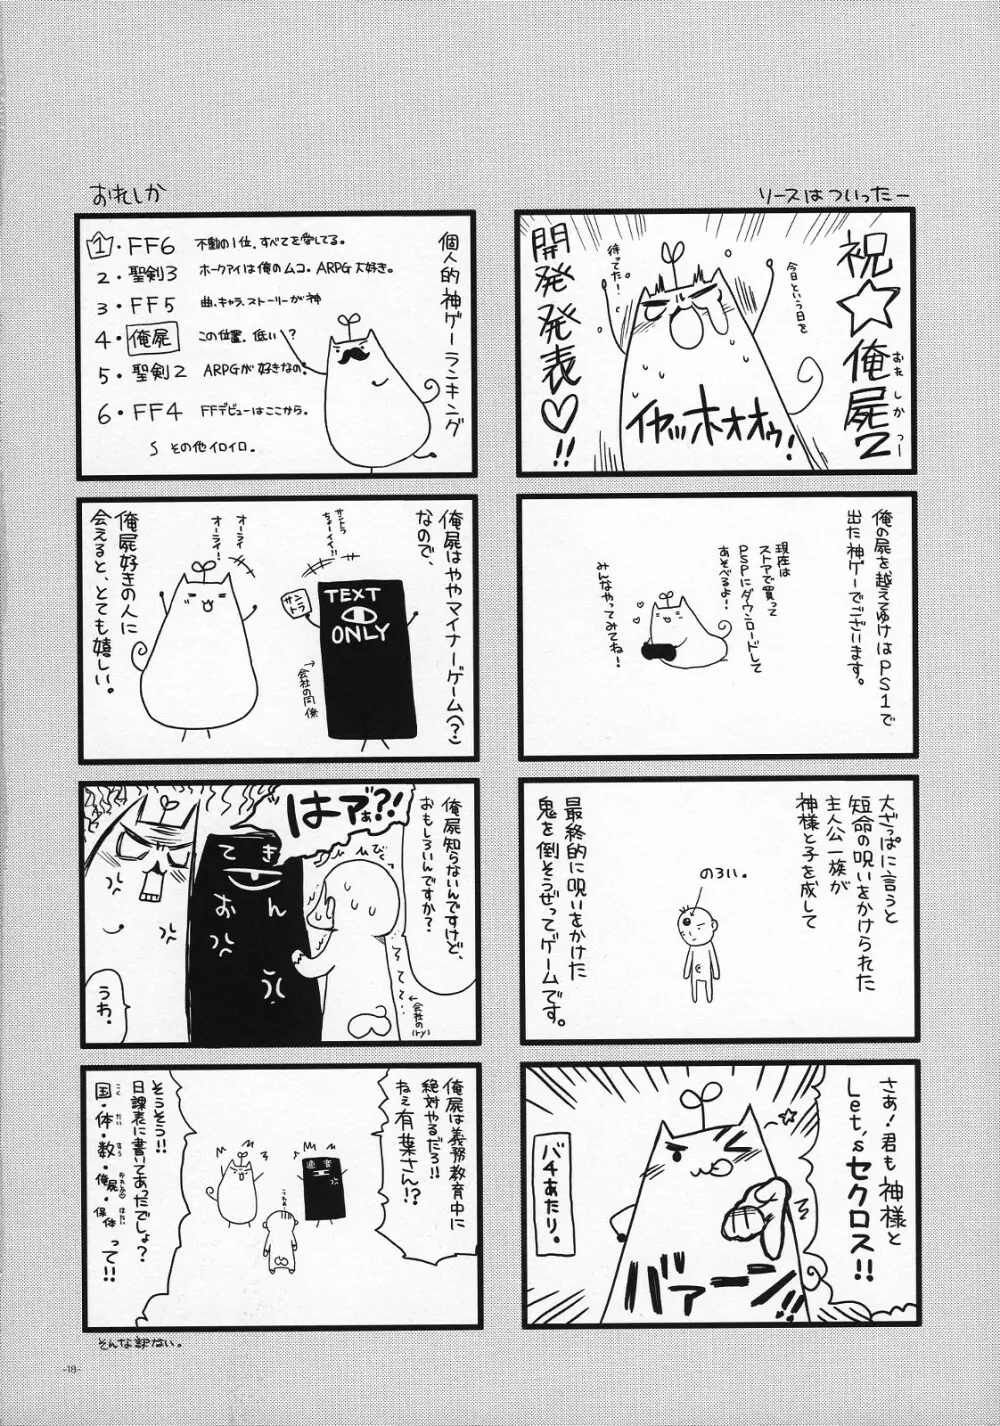 ソースはついったー
祝☆俺屍2
おれ
しかつー
開発発表♡!!
今日という日を
待ってた!
イヤッホォオォゥ!
俺の屍を越えてゆけはPS1で
出た神ゲーでございます。
現在は
ストアで買って
PSPにダウンロードして
あそべるよ!
みんなやってみてね!
大ざっぱに言うと
短命の呪いをかけられた
主人公一族が
神様と子を成して
のろい。
最終的に呪いをかけた
鬼を倒そうぜってゲームです。
さぁ!君も神様と
Let'sセクロス!!
バチあたり。
バァーン!!
おれしか
個人的神ゲーランキング
1・FF6 不動の1位、すべてを愛してる。
2・聖剣3 ホークアイは俺のムコ。ARPG大好き。
3・FF5 曲、キャラ、ストーリーが神
4・俺屍 この位置、低い?
5・聖剣2 ARPGが好きなの。
6・FF4 FFデビューはここから。
S その他イロイロ。
俺屍はややマイナーゲーム(?)
なので、
サントラ
ちょーイイ!!
サントラ
TEXT
ONLY
→会社の同僚
オーライ
オーライ!
俺屍好きの人に
会えると、とても嬉しい。
俺屍知らないんですけど、
おもしろいんですか?
はァぁ?!
びくっ
てき
おん
←会社の(ry)
うわ。
俺屍は義務教育中に
絶対やるだろ!!
ねぇ有葉さん!?
そうそう!!
日課表に書いてあったでしょ?
国・体・数・俺屍・保体って!!
こく
たい
すう
おれしか
ほたい
そんな訳ない。
-18-